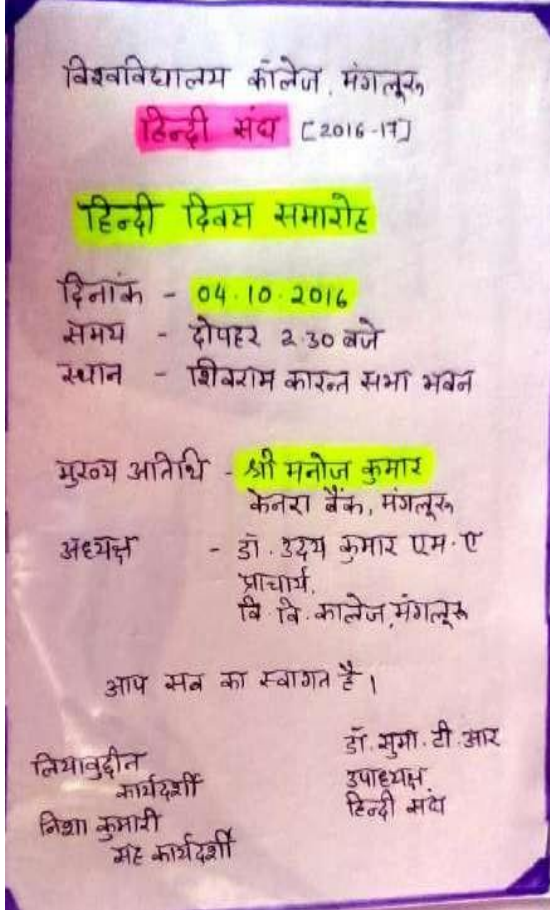 विश्वविद्यालय कॉलेज, मंगलूरु
हिन्दी संघ [2016-17]
हिन्दी दिवस समारोह
दिनांक - 04.10.2016
समय - दोपहर 2.30 बजे
स्थान - शिवराम कारन्त सभा भवन
मुख्य अतिथि - श्री मनोज कुमार
केनरा बैंक, मंगलूरु
अध्यक्ष - डॉ. उदय कुमार एम.ए
प्राचार्य,
वि.वि.कालेज,मंगलूरु
आप सब का स्वागत है।
डॉ.सुमा.टी.आर
लियावुद्दीन
उपाध्यक्ष
कार्यदर्शी
हिन्दी संघ
निशा कुमारी
सह कार्यदर्शी